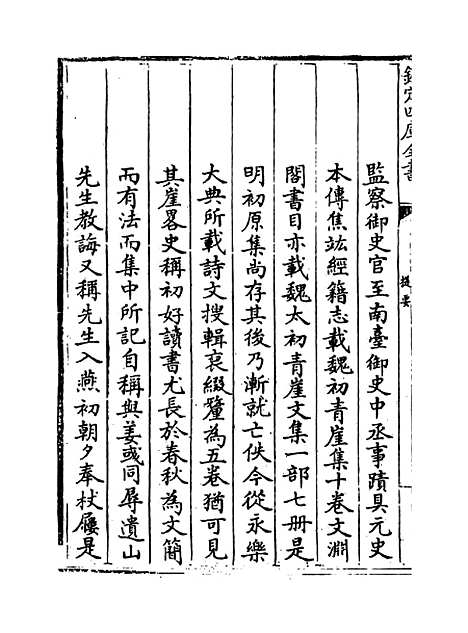 欽定四庫全書
提要
監察御史官至南臺御史中丞事蹟具元史
本傳焦竑經籍志載魏初青崖集十卷文淵
閣書目亦載魏太初青崖文集一部七册是
明初原集尚存其後乃漸就亡佚今從永樂
大典所載詩文搜輯裒綴釐為五卷猶可見
其崖畧史稱初好讀書尤長於春秋為文簡
而有法而集中所記自稱與姜彧同辱遺山
先生教誨又稱先生入燕初朝夕奉杖屨是